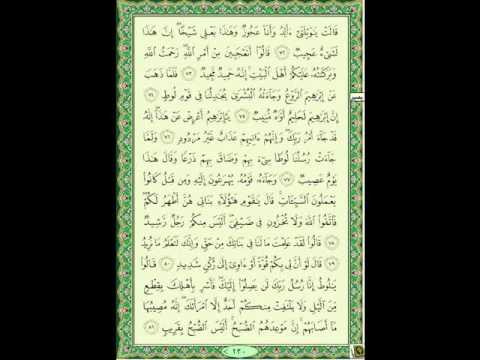 قَالَتْ يَٰوَيْلَتَىٰٓ ءَأَلِدُ وَأَنَا۠ عَجُوزٌ وَهَٰذَا بَعْلِى شَيْخًا ۖ إِنَّ هَٰذَا
لَشَىْءٌ عَجِيبٌ ٧٢ قَالُوٓا۟ أَتَعْجَبِينَ مِنْ أَمْرِ ٱللَّهِ ۖ رَحْمَتُ ٱللَّهِ
وَبَرَكَٰتُهُۥ عَلَيْكُمْ أَهْلَ ٱلْبَيْتِ ۚ إِنَّهُۥ حَمِيدٌ مَّجِيدٌ ٧٣ فَلَمَّا ذَهَبَ
عَنْ إِبْرَٰهِيمَ ٱلرَّوْعُ وَجَآءَتْهُ ٱلْبُشْرَىٰ يُجَٰدِلُنَا فِى قَوْمِ لُوطٍ ٧٤
إِنَّ إِبْرَٰهِيمَ لَحَلِيمٌ أَوَّٰهٌ مُّنِيبٌ ٧٥ يَٰٓإِبْرَٰهِيمُ أَعْرِضْ عَنْ هَٰذَآ ۖ إِنَّهُۥ
قَدْ جَآءَ أَمْرُ رَبِّكَ ۖ وَإِنَّهُمْ ءَاتِيهِمْ عَذَابٌ غَيْرُ مَرْدُودٍ ٧٦ وَلَمَّا
جَآءَتْ رُسُلُنَا لُوطًا سِىٓءَ بِهِمْ وَضَاقَ بِهِمْ ذَرْعًا وَقَالَ هَٰذَا
يَوْمٌ عَصِيبٌ ٧٧ وَجَآءَهُۥ قَوْمُهُۥ يُهْرَعُونَ إِلَيْهِ وَمِن قَبْلُ كَانُوا۟
يَعْمَلُونَ ٱلسَّيِّـَٔاتِ ۚ قَالَ يَٰقَوْمِ هَٰٓؤُلَآءِ بَنَاتِى هُنَّ أَطْهَرُ لَكُمْ ۖ
فَٱتَّقُوا۟ ٱللَّهَ وَلَا تُخْزُونِ فِى ضَيْفِىٓ ۖ أَلَيْسَ مِنكُمْ رَجُلٌ رَّشِيدٌ
٧٨ قَالُوا۟ لَقَدْ عَلِمْتَ مَا لَنَا فِى بَنَاتِكَ مِنْ حَقٍّ وَإِنَّكَ لَتَعْلَمُ مَا نُرِيدُ
٧٩ قَالَ لَوْ أَنَّ لِى بِكُمْ قُوَّةً أَوْ ءَاوِىٓ إِلَىٰ رُكْنٍ شَدِيدٍ ٨٠ قَالُوا۟
يَٰلُوطُ إِنَّا رُسُلُ رَبِّكَ لَن يَصِلُوٓا۟ إِلَيْكَ ۖ فَأَسْرِ بِأَهْلِكَ بِقِطْعٍ
مِّنَ ٱلَّيْلِ وَلَا يَلْتَفِتْ مِنكُمْ أَحَدٌ إِلَّا ٱمْرَأَتَكَ ۖ إِنَّهُۥ مُصِيبُهَا
مَآ أَصَابَهُمْ ۚ إِنَّ مَوْعِدَهُمُ ٱلصُّبْحُ ۚ أَلَيْسَ ٱلصُّبْحُ بِقَرِيبٍ ٨١
< ٢٣٠